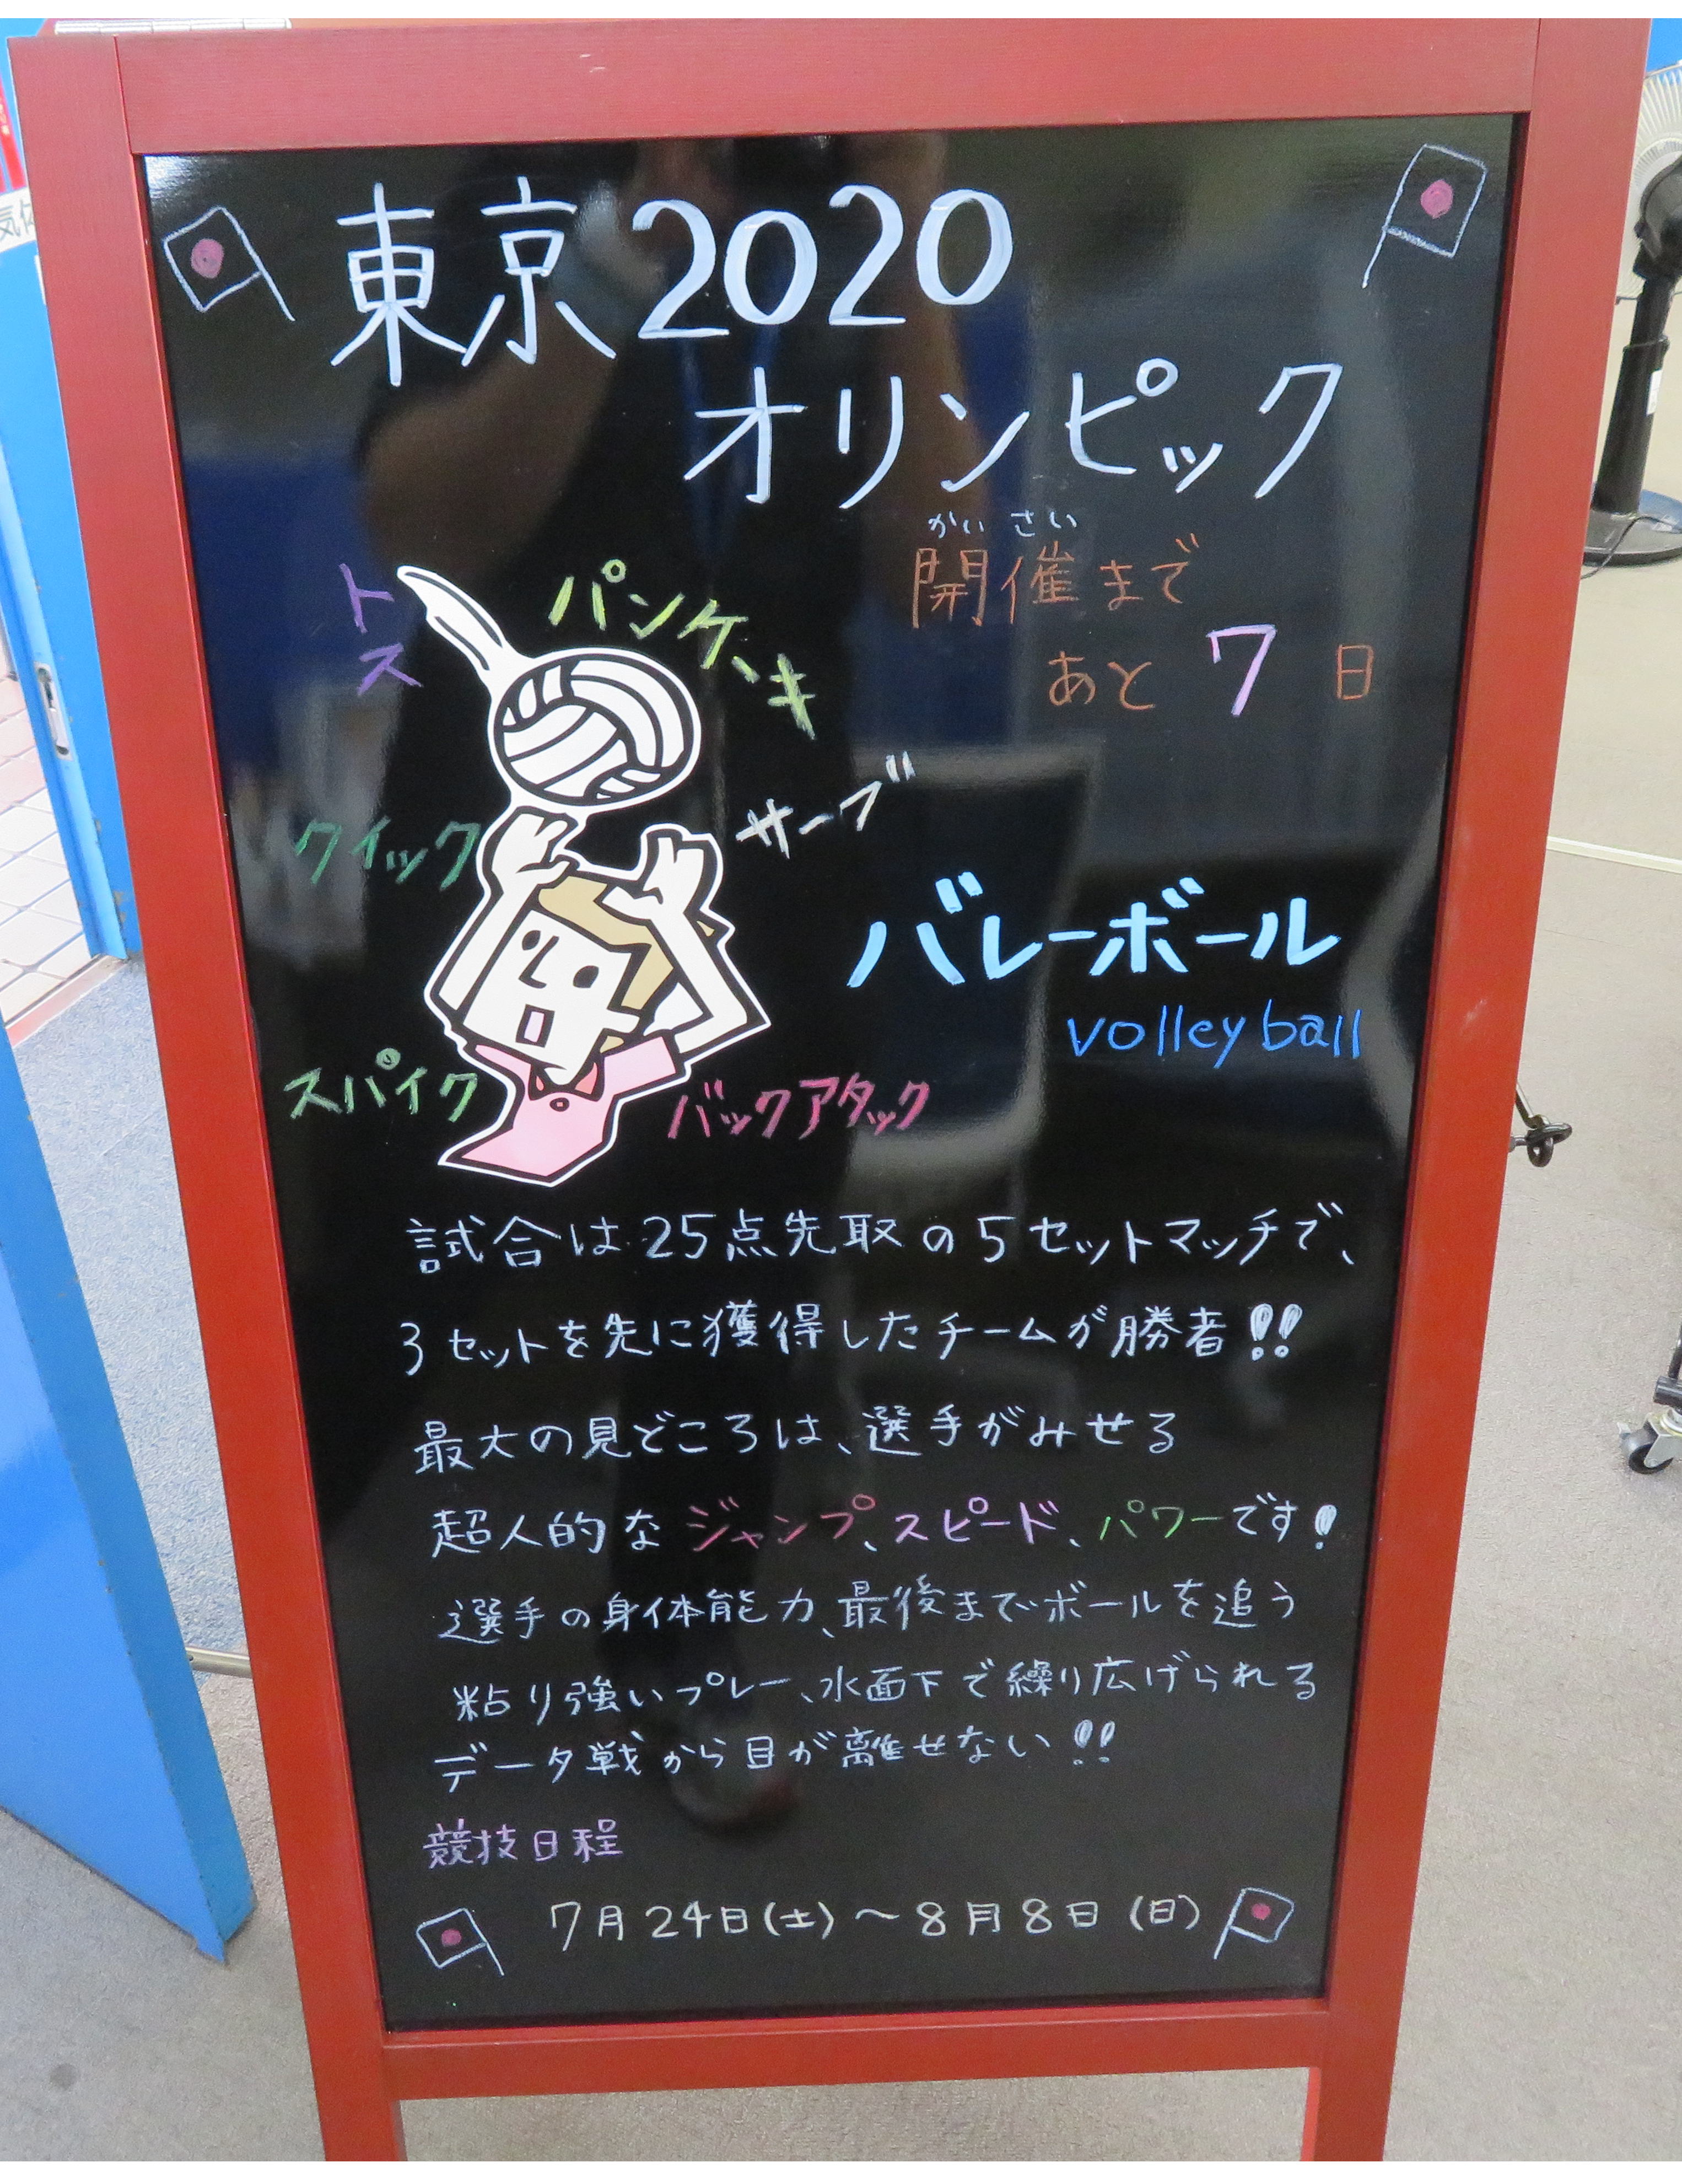 東京2020
オリンピック
かいさい
開催まで
あと 7 日
トス
パンケーキ
クイック
サーブ
バレーボール
volleyball
スパイク
バックアタック
試合は25点先取の5セットマッチで、
3セットを先に獲得したチームが勝者!!
最大の見どころは、選手がみせる
超人的なジャンプ、スピード、パワーです!
選手の身体能力、最後までボールを追う
粘り強いプレー、水面下で繰り広げられる
データ戦から目が離せない!!
競技日程
7月24日(土)～8月8日(日)